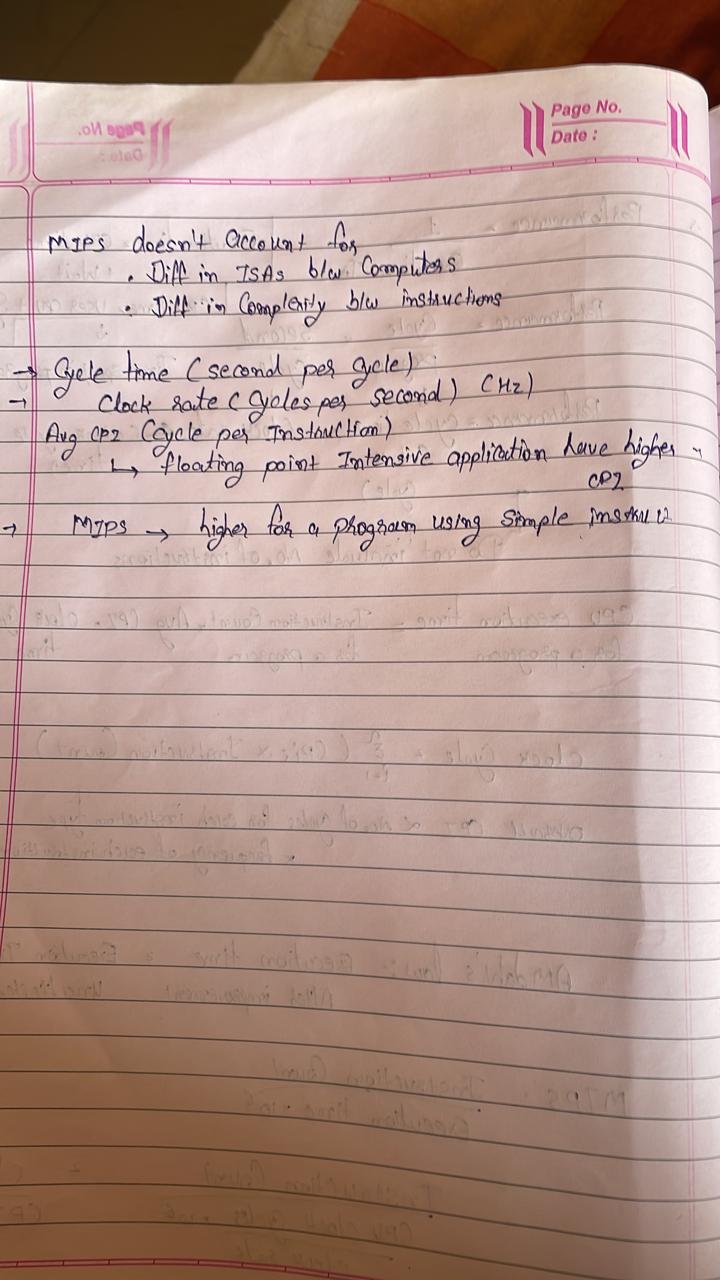 Page No.
Date :
MIPS doesn't account for
. Diff in ISAs b/w Computers
. Diff in Complexity b/w instructions
→ Cycle time (second per cycle)
→ Clock rate (Cycles per second) (Hz)
Avg CPI (Cycle per Instruction)
↳ floating point Intensive application have higher
CPI
→ MIPS → higher for a program using simple